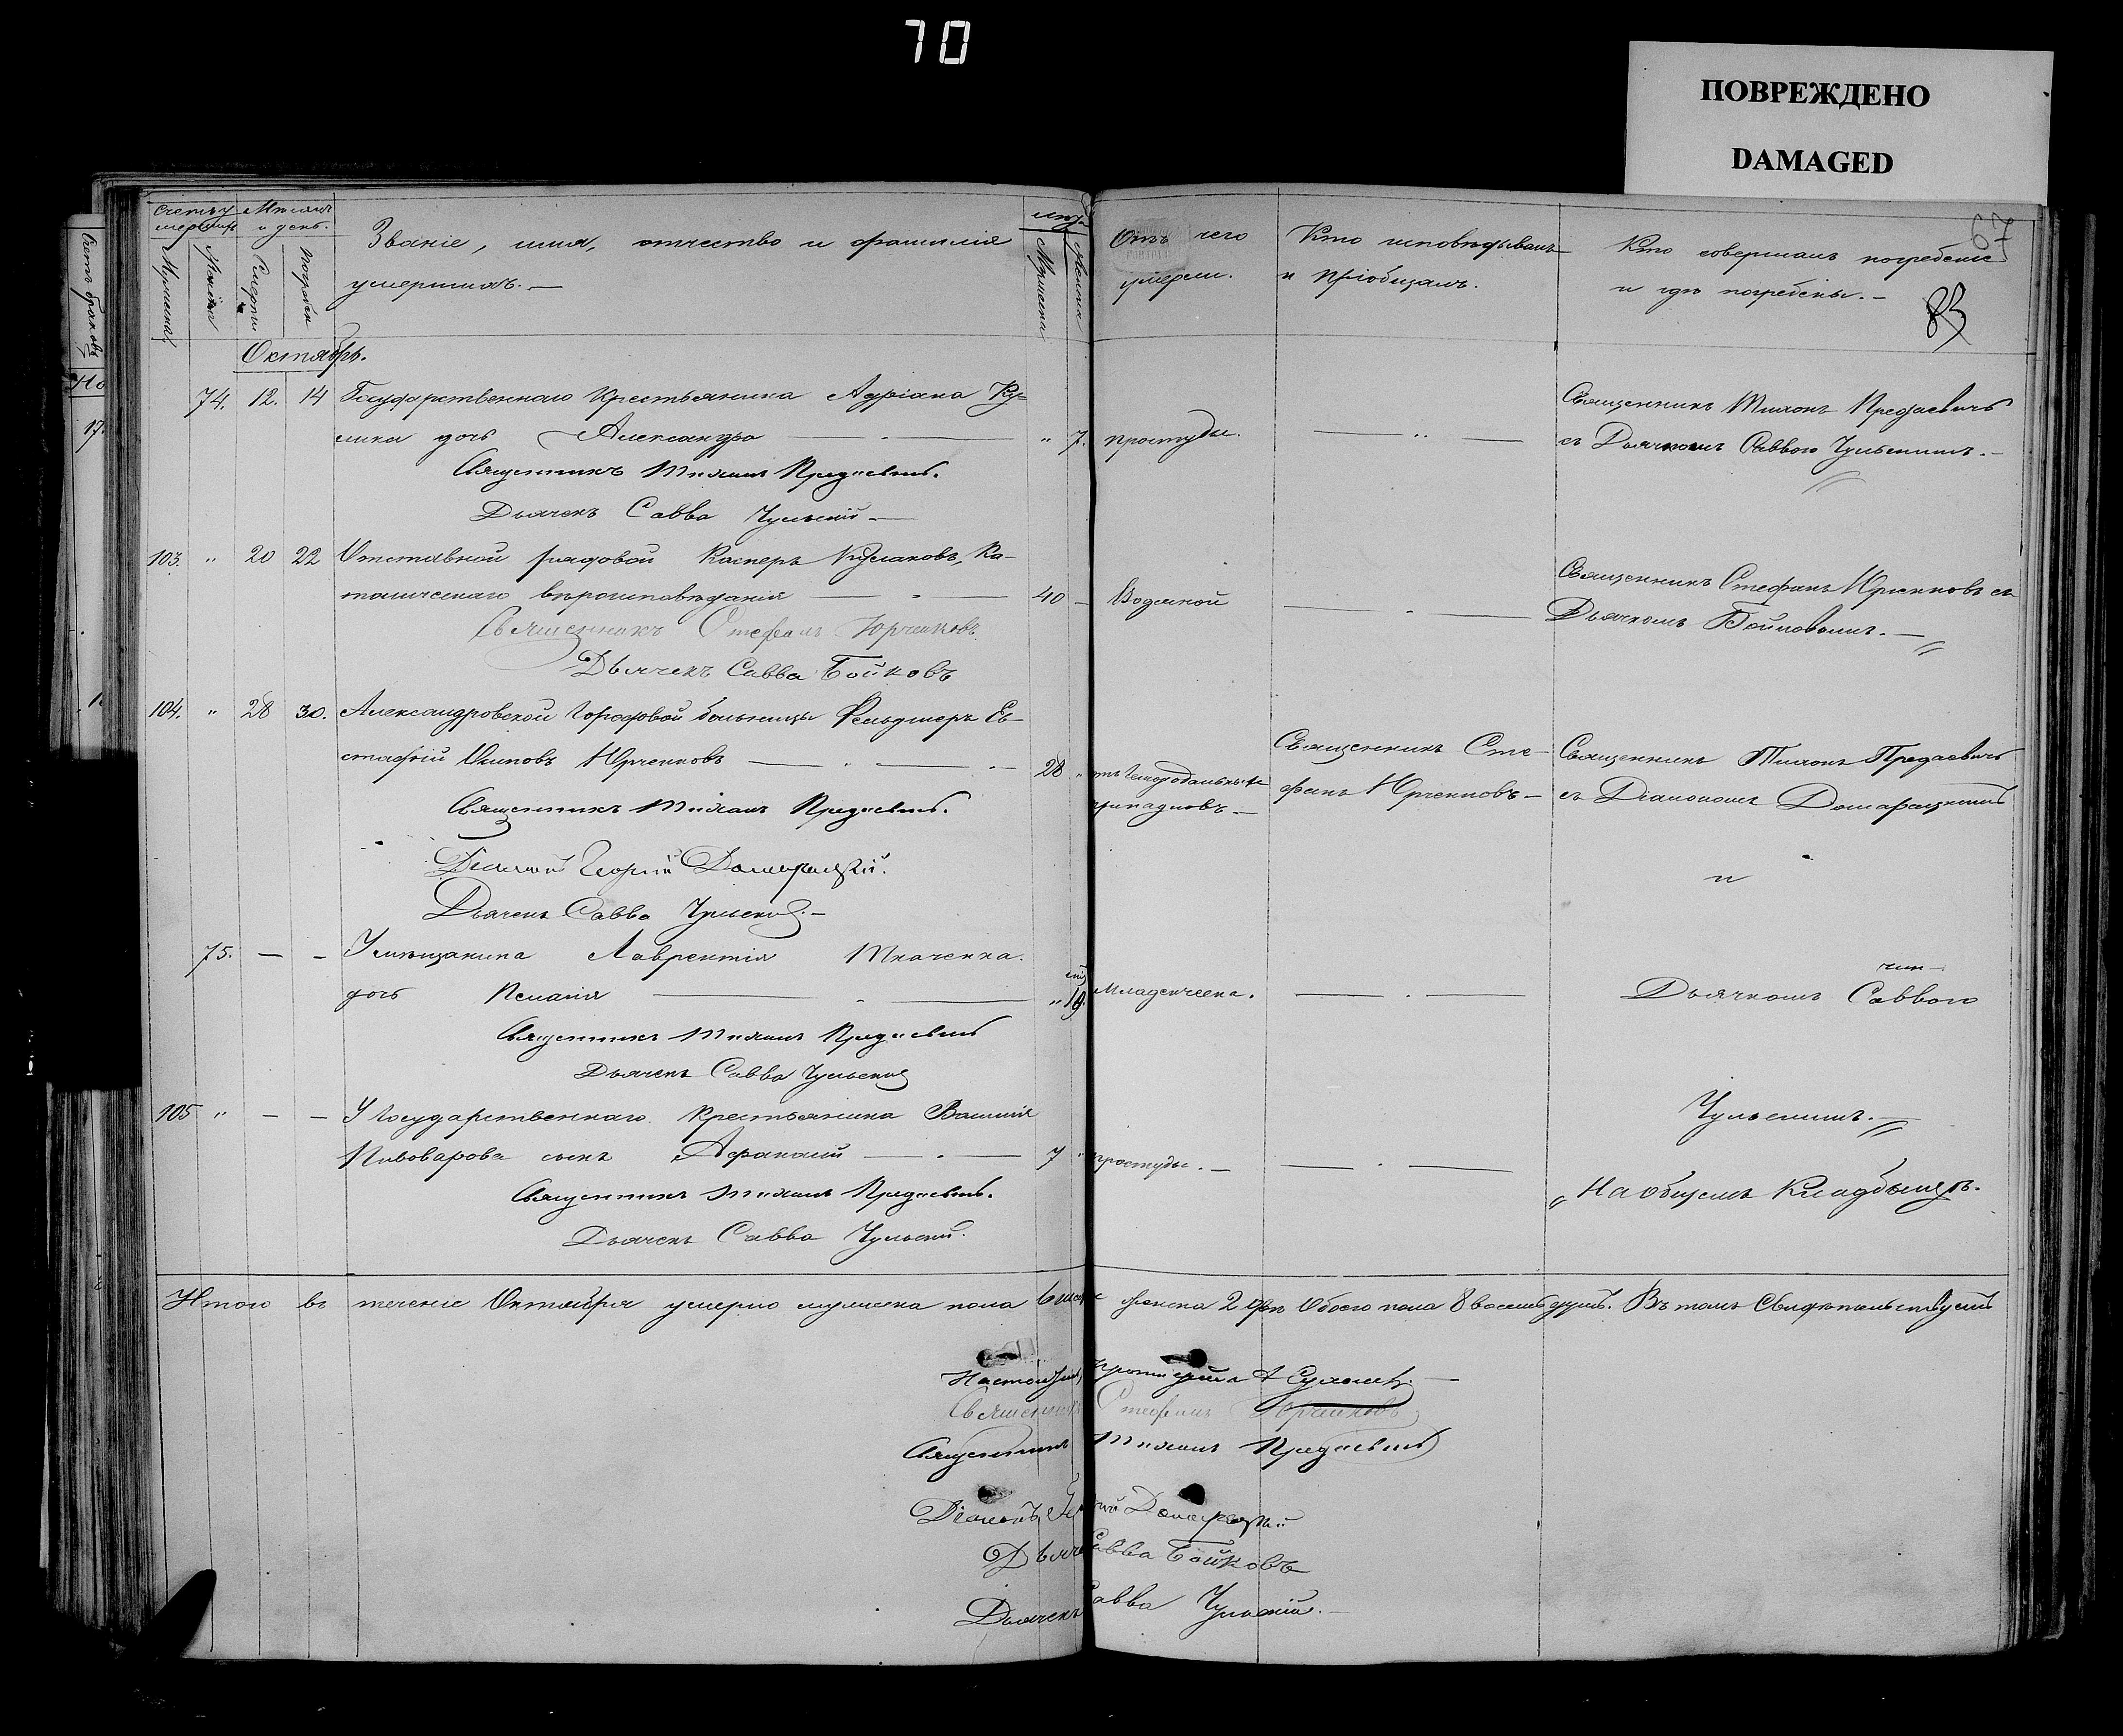 70
ПОВРЕЖДЕНО
DAMAGED
67
83
Счетъ умершихъ
Мѣсяцъ и день.
Званіе, имя, отчество и фамилія
умершихъ. —
Мужеска
Женска
Смерти
Погребен
Мужеска
Женска
Отъ чего
умерли.
Кто исповѣдывалъ
и пріобщалъ.
Кто совершалъ погребеніе
и гдѣ погребены. —
Счетъ браковъ
17.
Октябрь.
74. 12. 14 Государственнаго Крестьянина Адріана
дочь Александра — " 7. простуды.
Священникъ Тихонъ Предаевичъ
съ Дьячкомъ Саввою Чульскимъ. —
Священникъ Тихонъ Предаевичъ.
Дьячекъ Савва Чульскій —
103. " 20 22 Отставной рядовой Касперъ Ка-
толическаго вѣроисповѣданія — 40 — Водяной
Священникъ Стефанъ Юрченковъ съ
Дьячкомъ Бойковымъ. —
Священникъ Стефанъ Юрченковъ
Дьячекъ Савва Бойковъ
104. " 28 30. Александровской Городовой больницы Фельдшеръ Ев-
стафій Осиповъ Юрченковъ — 28 " отъ Гемороидальныхъ
припадковъ. —
Священникъ Сте-
фанъ Юрченковъ —
Священникъ Тихонъ Предаевичъ
съ Діакономъ Домарацкимъ
и
Священникъ Тихонъ Предаевичъ.
Діаконъ Георгій Домарацкій.
Дьячекъ Савва Чульскій. —
75. — — У мѣщанина Лаврентія Ткаченка
дочь Пелагія — " Младенческа.
Дьячкомъ Саввою
Священникъ Тихонъ Предаевичъ
Дьячекъ Савва Чульскій
105 " — — У Государственнаго Крестьянина Василія
Пивоварова сынъ Афанасій — 7 " простуды. —
Чульскимъ. —
"На общемъ кладбищѣ.
Священникъ Тихонъ Предаевичъ.
Дьячекъ Савва Чульскій.
Итого въ теченіе Октября умерло мужеска пола 6 женска 2 двѣ Обоего пола 8 восемь душъ. Въ томъ Свидѣтельствуемъ
Священникъ Стефанъ Юрченковъ
Священникъ Тихонъ Предаевичъ
Діаконъ Домарацкій
Дьячекъ Савва Бойковъ
Дьячекъ Савва Чульскій. —